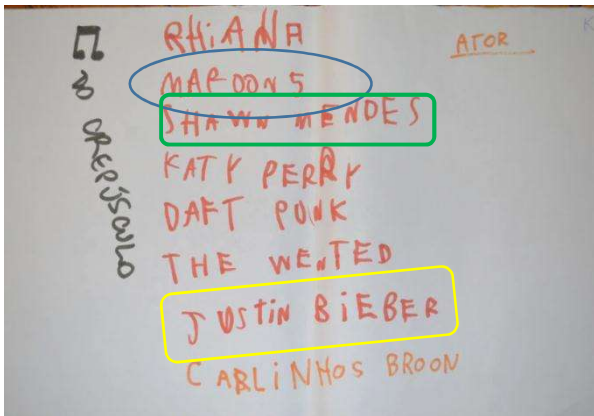 RHiANA
MAROON 5
SHAWN MENDES
KATY PERRY
DAFT PUNK
THE WENTED
JUSTiN BiEBER
CARLiNHOS BROON
ATOR
CREPÚSCULO